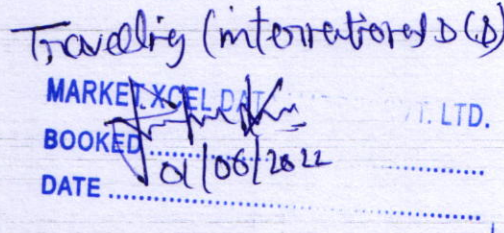 Travelling (international
MARKET XCEL DAT T. LTD.
BOOKED
01/06/2022
DATE